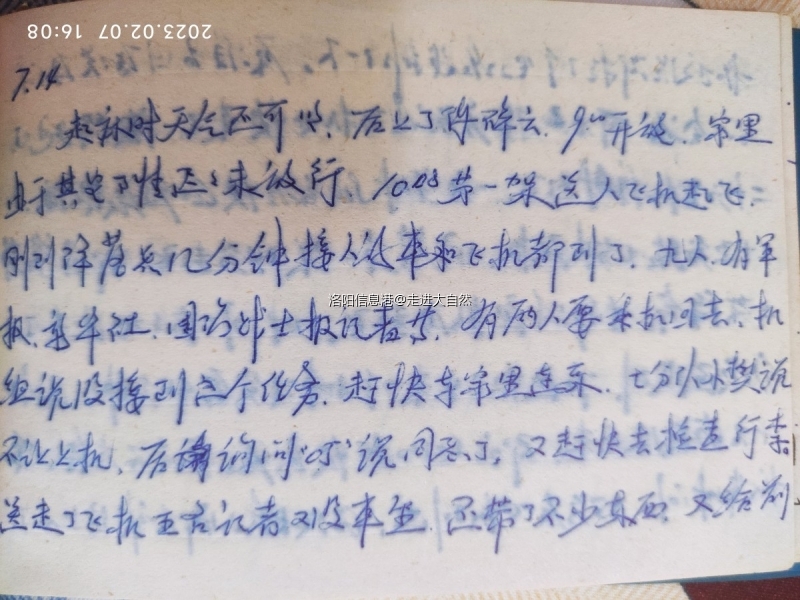 2023.02.07 16:08
7.14
起床时天气还可以,后上了阵碎云,9°°开放,家里
由于其它事情迟迟未放行,10.08第一架送人飞机起飞,
刚到降落点几分钟接人的车和飞机都到了,九人,有军
报,新华社,国防战士报记者等,有两人要乘机回去,机
组说没接到这个任务,赶快与家里连系,七分队小樊说
不让上机,后询问"05"说同意了,又赶快去检查行李
送走了飞机五名记者又没车坐,还带了不少东西,又给别
洛阳信息港@走进大自然